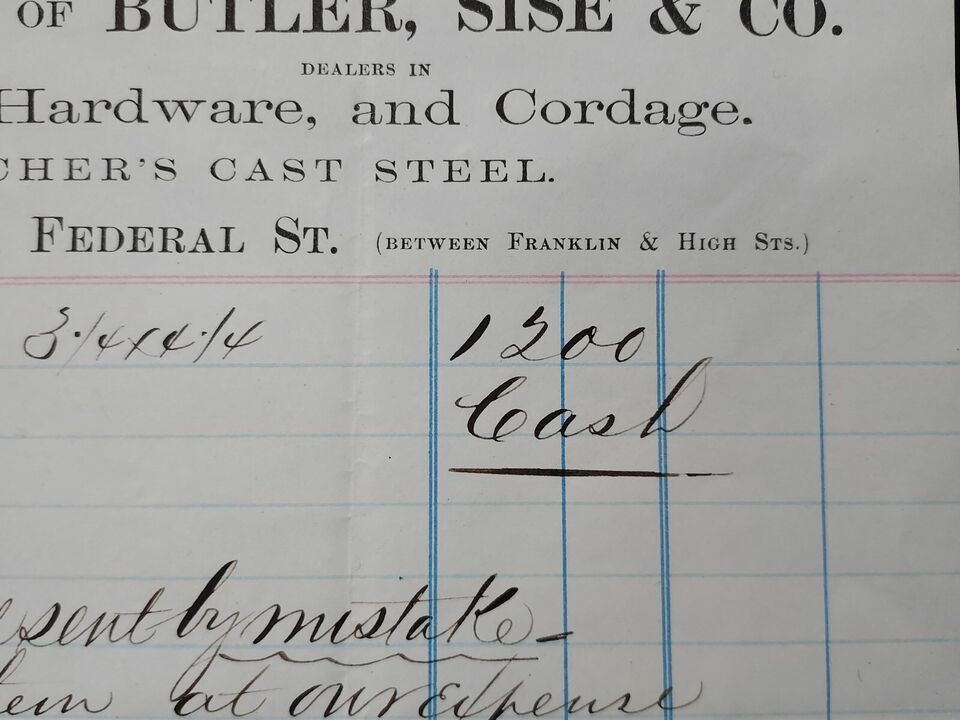 OF BUTLER, SISE & CO.
DEALERS IN
Hardware, and Cordage.
CHER'S CAST STEEL.
FEDERAL ST. (BETWEEN FRANKLIN & HIGH STS.)
3·/4x4·/4 1200
Cash
sent by mistake -
at our Expense